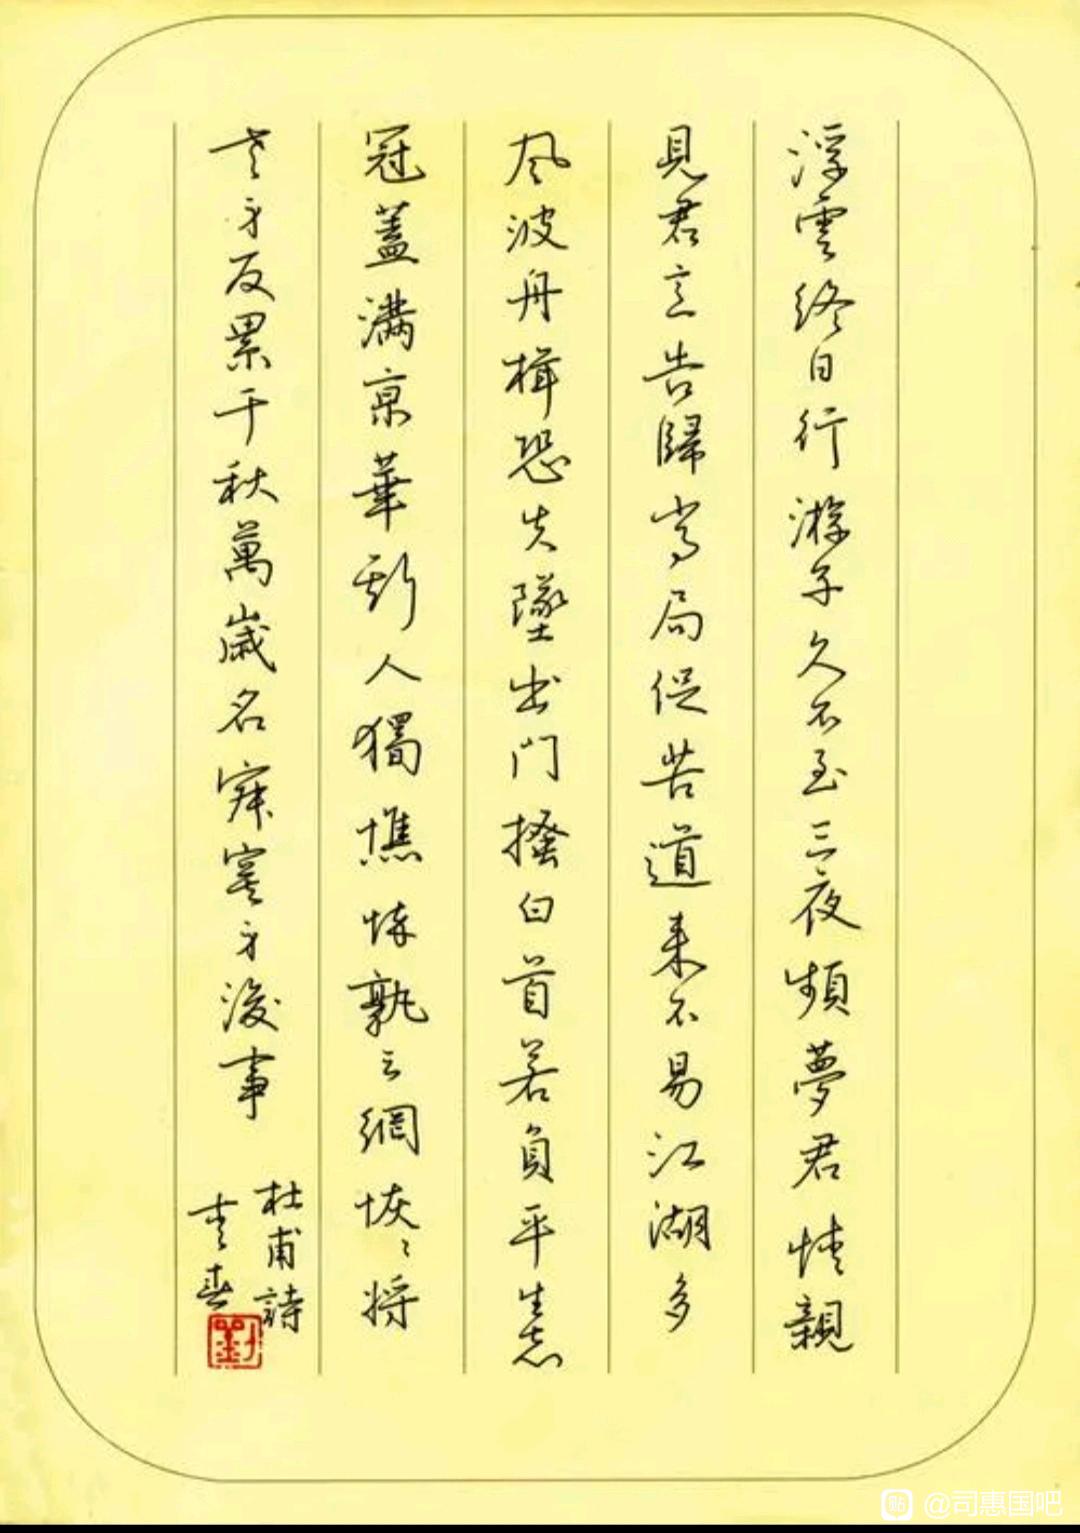 浮雲終日行游子久不至三夜頻夢君情親
見君意告歸常局促苦道来不易江湖多
風波舟楫恐失墜出門搔白首若負平生志
冠蓋滿京華斯人獨憔悴孰云網恢〻將
老身反累千秋萬歲名寂寞身後事
杜甫詩
劉
贴 @司惠国吧